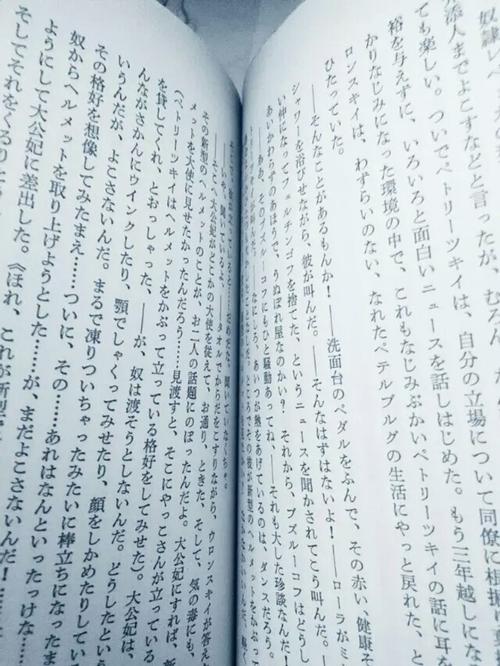 添人までよこすなどと言ったが
ても楽しい。ついでペトリーツキイは、自分の立場について同僚に相
裕を与えずに、いろいろと面白いニュースを話しはじめた。もう三年越しにな
かりなじみになった環境の中で、これもなじみぶかいペトリーツキイの話に耳
ロンスキイは、わずらいのない、なれたペテルブルグの生活にやっと戻れた、と
ひたっていた。
――そんなことがあるもんか！――洗面台のペダルをふんで、その赤い、健康そ
シャワーを浴びせながら、彼が叫んだ。――そんなはずはないよ！――ローラがミ
い仲になってフェルチンゴフを捨てた、というニュースを聞かされてこう叫んだ。
あいかわらずのあほうで、うぬぼれ屋なのかい？　それから、ブズルーコフはどうし
――ああ、そのブズルーコフにもひと騒動あってね、――それも大した珍談なんだ
なにしろ、あいつが熱をあげているのは、ダンスだろう。
タオルでからだをこすりながら、ウロンスキイが答え
そこへ、大公妃がどこかの大使を従えて、お通り、ときた、そして、気の毒にも、
その新型のヘルメットのことが、お二人の話題にのぼったんだよ。大公妃にすれば、新
メットを大使に見せたかったんだろう……見渡すと、そこにやっこさんが立っている
（ペトリーツキイはヘルメットをかぶって立っている格好をしてみせた）。
を貸してくれ、とおっしゃった、――が、奴は渡そうとしないんだ。どうしたという
んながさかんにウインクしたり、顎でしゃくってみせたり、顔をしかめたりしている
いうんだが、よこさないんだ。まるで凍りついちゃったみたいに棒立ちになった
その格好を想像してみたまえ……ついに、その……あれはなんといったっけな……
奴からヘルメットを取り上げようとした……が、まだよこさないんだ！
ようにして大公妃に差出した。《ほれ、これが新型で
そしてそれをくるり